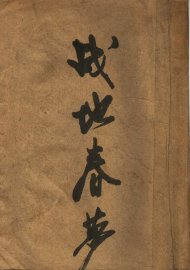 战地春梦